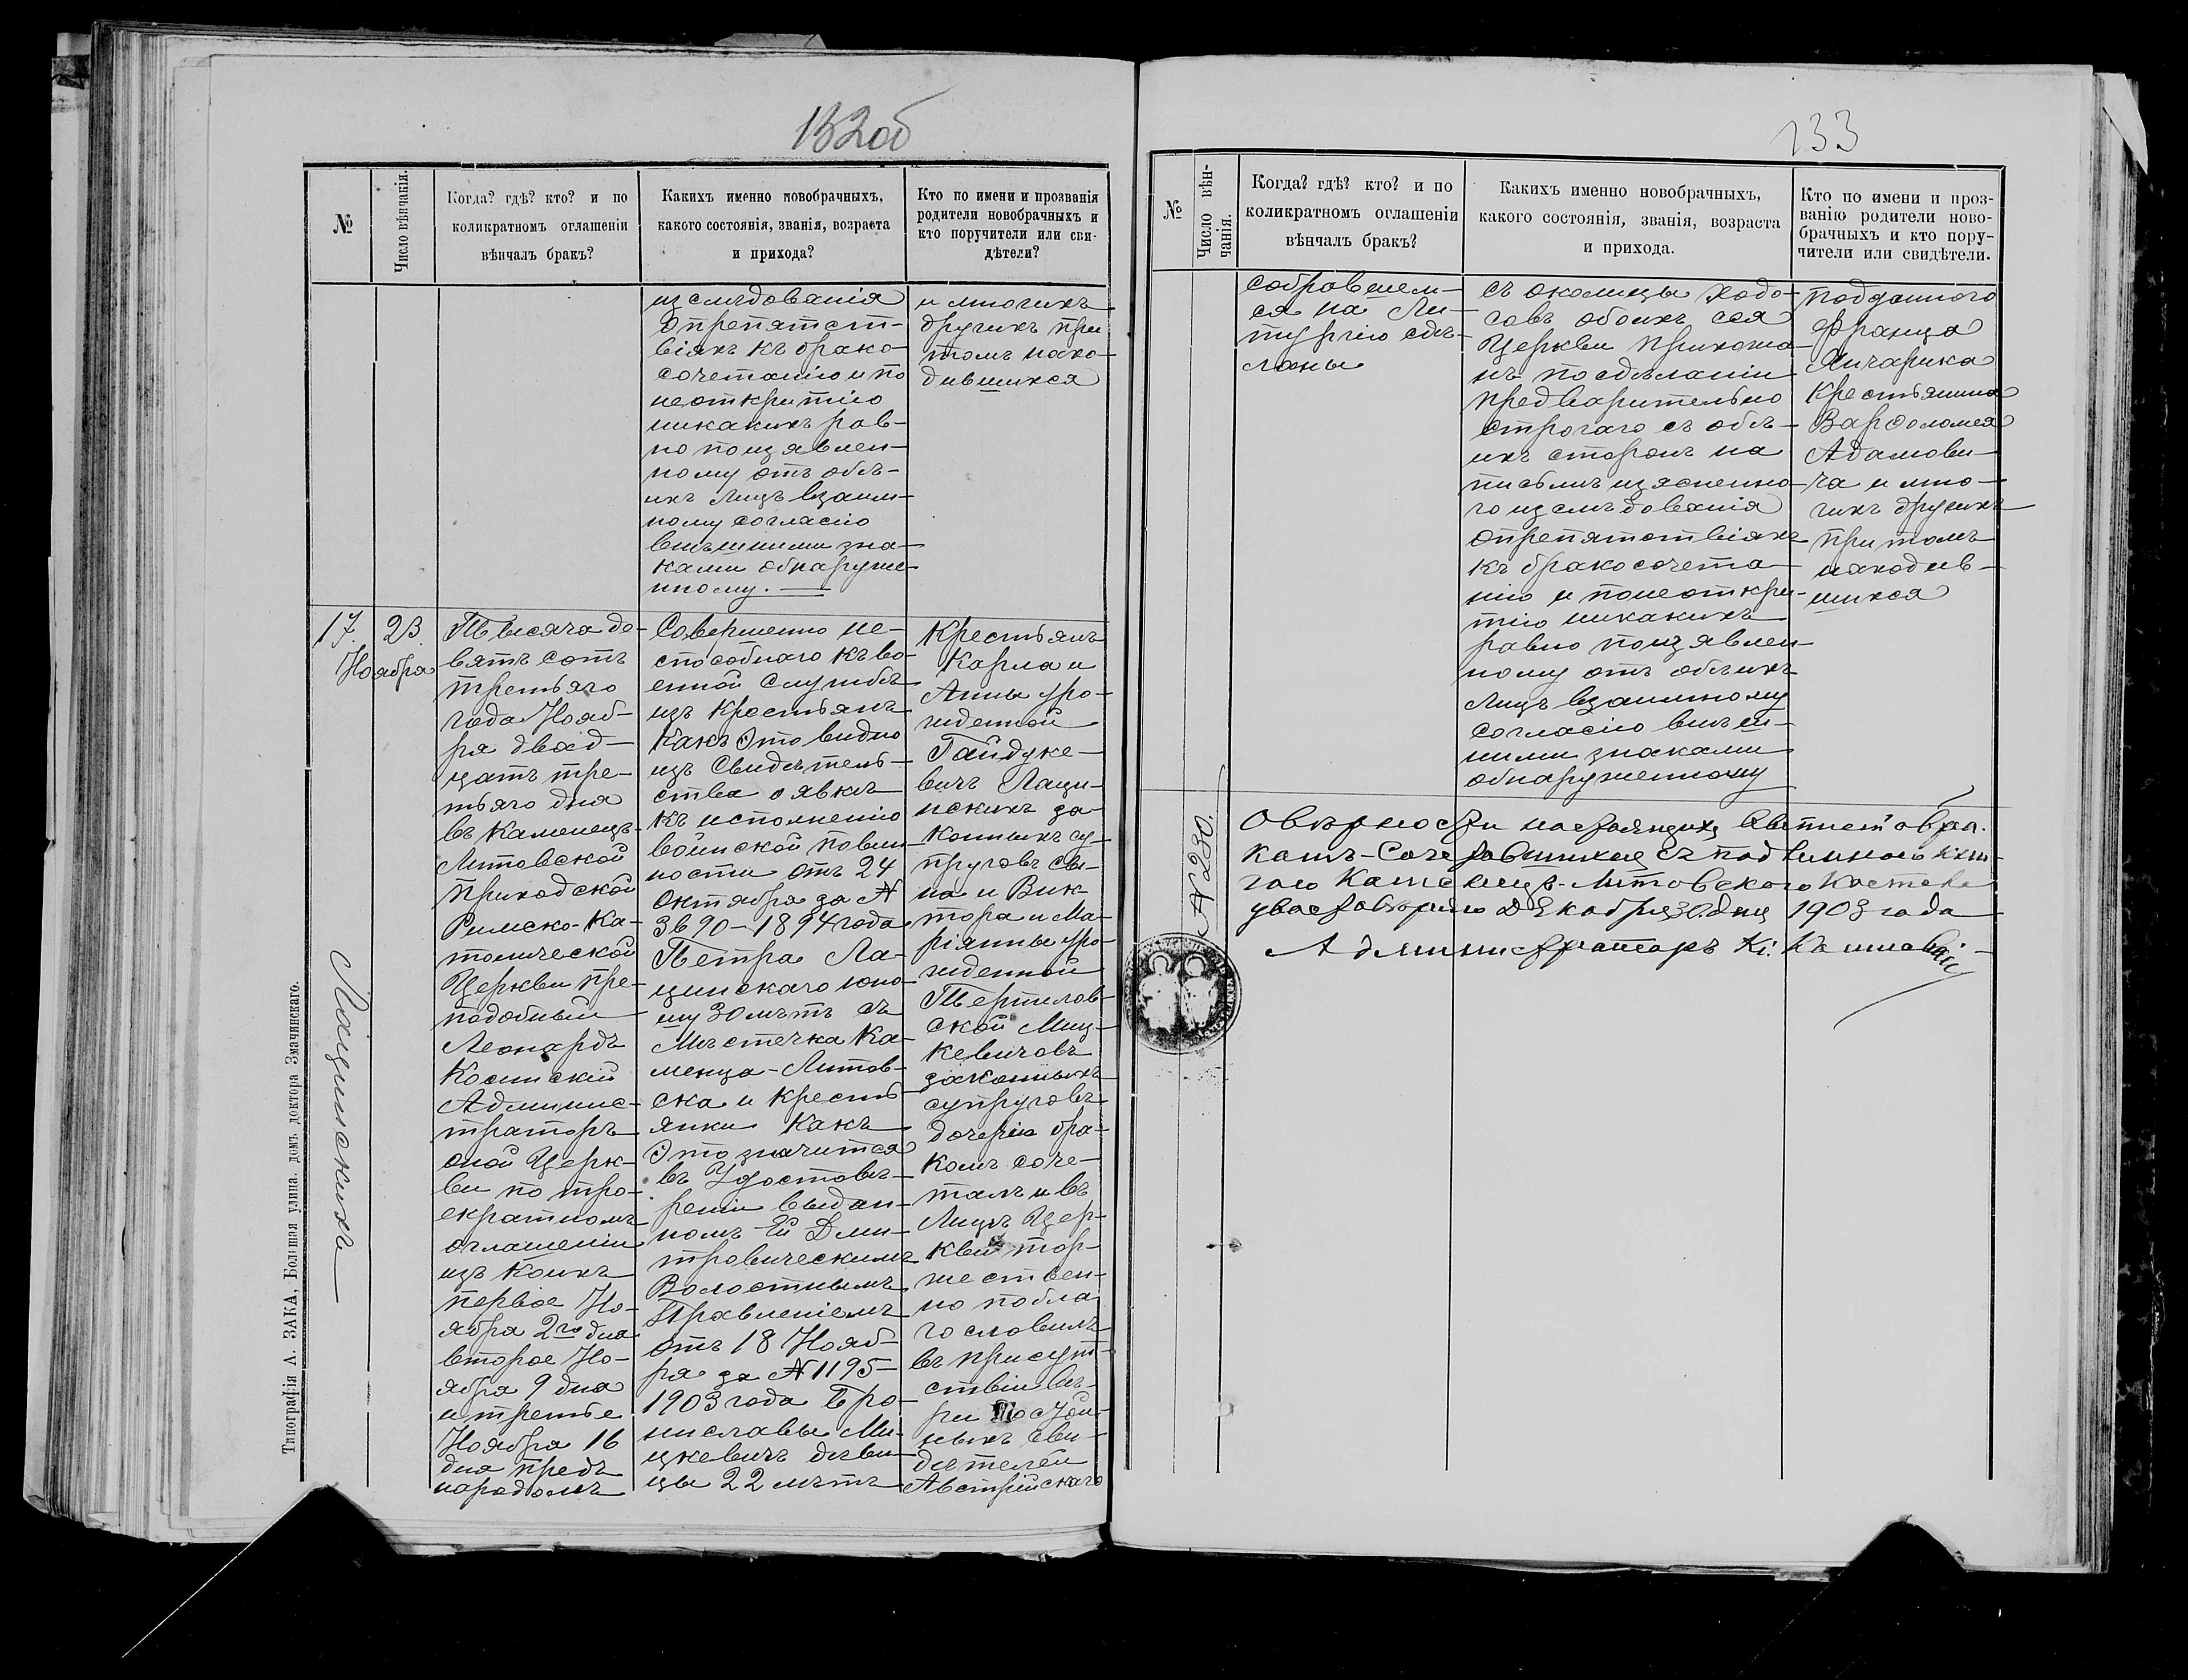 132об
№
Число вѣнчанія.
Когда? гдѣ? кто? и по
коликратномъ оглашеніи
вѣнчалъ бракъ?
Какихъ именно новобрачныхъ,
какого состоянія, званія, возраста
и прихода?
Кто по имени и прозванія
родители новобрачныхъ и
кто поручители или сви-
дѣтели?
изслѣдованія
о препятст-
віяхъ къ брако-
сочетанію и по
неоткритію
никакихъ рав-
но поизъявлен-
ному отъ обѣ-
ихъ лицъ взаим-
ному согласію
внѣшними зна-
ками обнаруже-
нному. —
и многихъ
другихъ при
томъ нахо-
дившихся
17.
23.
Ноября
Лацинскихъ
Тысяча де-
вятъ сотъ
третьяго
года Нояб-
ря двад-
цатъ тре-
тьяго дня
въ Каменецъ-
Литовской
приходской
Римско-Ка-
толической
Церкви пре-
подобный
Леонардъ
Косинскій
Админис-
траторъ
оной Церк-
ви по тро-
екратномъ
оглашеніи
изъ коихъ
первое Но-
ября 2го дня
второе Но-
ября 9 дня
и третье
Ноября 16
дня предъ
народомъ
Совершенно не-
способнаго къ во-
енной службѣ
изъ крестьянъ
какъ это видно
изъ Свидѣтель-
ства о явкѣ
къ исполненію
воинской повин-
ности отъ 24
Октября за №
3690 – 1894 года
Петра Ла-
цинскаго юно-
шу 30 лѣтъ съ
Мѣстечка Ка-
менца-Литов-
ска и кресть-
янки какъ
Это значится
въ Удостовѣ-
реніи выдан-
номъ Ей Дми-
тровическимъ
Волостнымъ
Правленіемъ
отъ 18 Нояб-
ря за № 1195 –
1903 года Бро-
ниславы Ми-
цкевичъ дѣви-
цы 22 лѣтъ
Крестьянъ
Карла и
Анны уро-
жденной
Гайдуке-
вичъ Лаци-
нскихъ за-
конныхъ су-
пруговъ сы-
на и Вик-
тора и Ма-
ріянны уро-
жденной
Тертилов-
ской Миц-
кевичовъ
законныхъ
супруговъ
дочерью бра-
комъ соче-
талъ и въ
Лицѣ Цер-
кви тор-
жествен-
но побла-
гословилъ
въ присут-
ствіи вѣ-
ри достой-
ныхъ сви-
дѣтелей
Австрійскаго
Типографія А. ЗАКА, Большая улица. домъ доктора Змачинскаго.
133
№
Число вѣн-
чанія.
Когда? гдѣ? кто? и по
коликратномъ оглашеніи
вѣнчалъ бракъ?
Какихъ именно новобрачныхъ,
какого состоянія, званія, возраста
и прихода.
Кто по имени и проз-
ванію родители ново-
брачныхъ и кто пору-
чители или свидѣтели.
собравшем-
ся на Ли-
тургію сдѣ-
ланы
съ околицы ходо-
совъ обоихъ сея
Церкви прихожа-
нъ по сдѣланіи
предварительно
строгаго съ обѣ-
ихъ сторонъ на
письмѣ изясненно-
го изслѣдованія
о препятствіяхъ
къ бракосочета-
нію и понеоткри-
тію никакихъ
равно поизъявлен-
ному отъ обѣихъ
лицъ взаимному
согласію внѣш-
ними знаками
обнаруженному
подданнаго
Франца
Янчарика
Крестьянина
Варфоломея
Адамови-
ча и мно-
гихъ другихъ
при томъ
находив-
шихся
№ 230.
О вѣрности настоящихъ
Каменецъ-Литовскаго Костела
удостовѣряю Декабря 30 дня 1903 года
Администраторъ